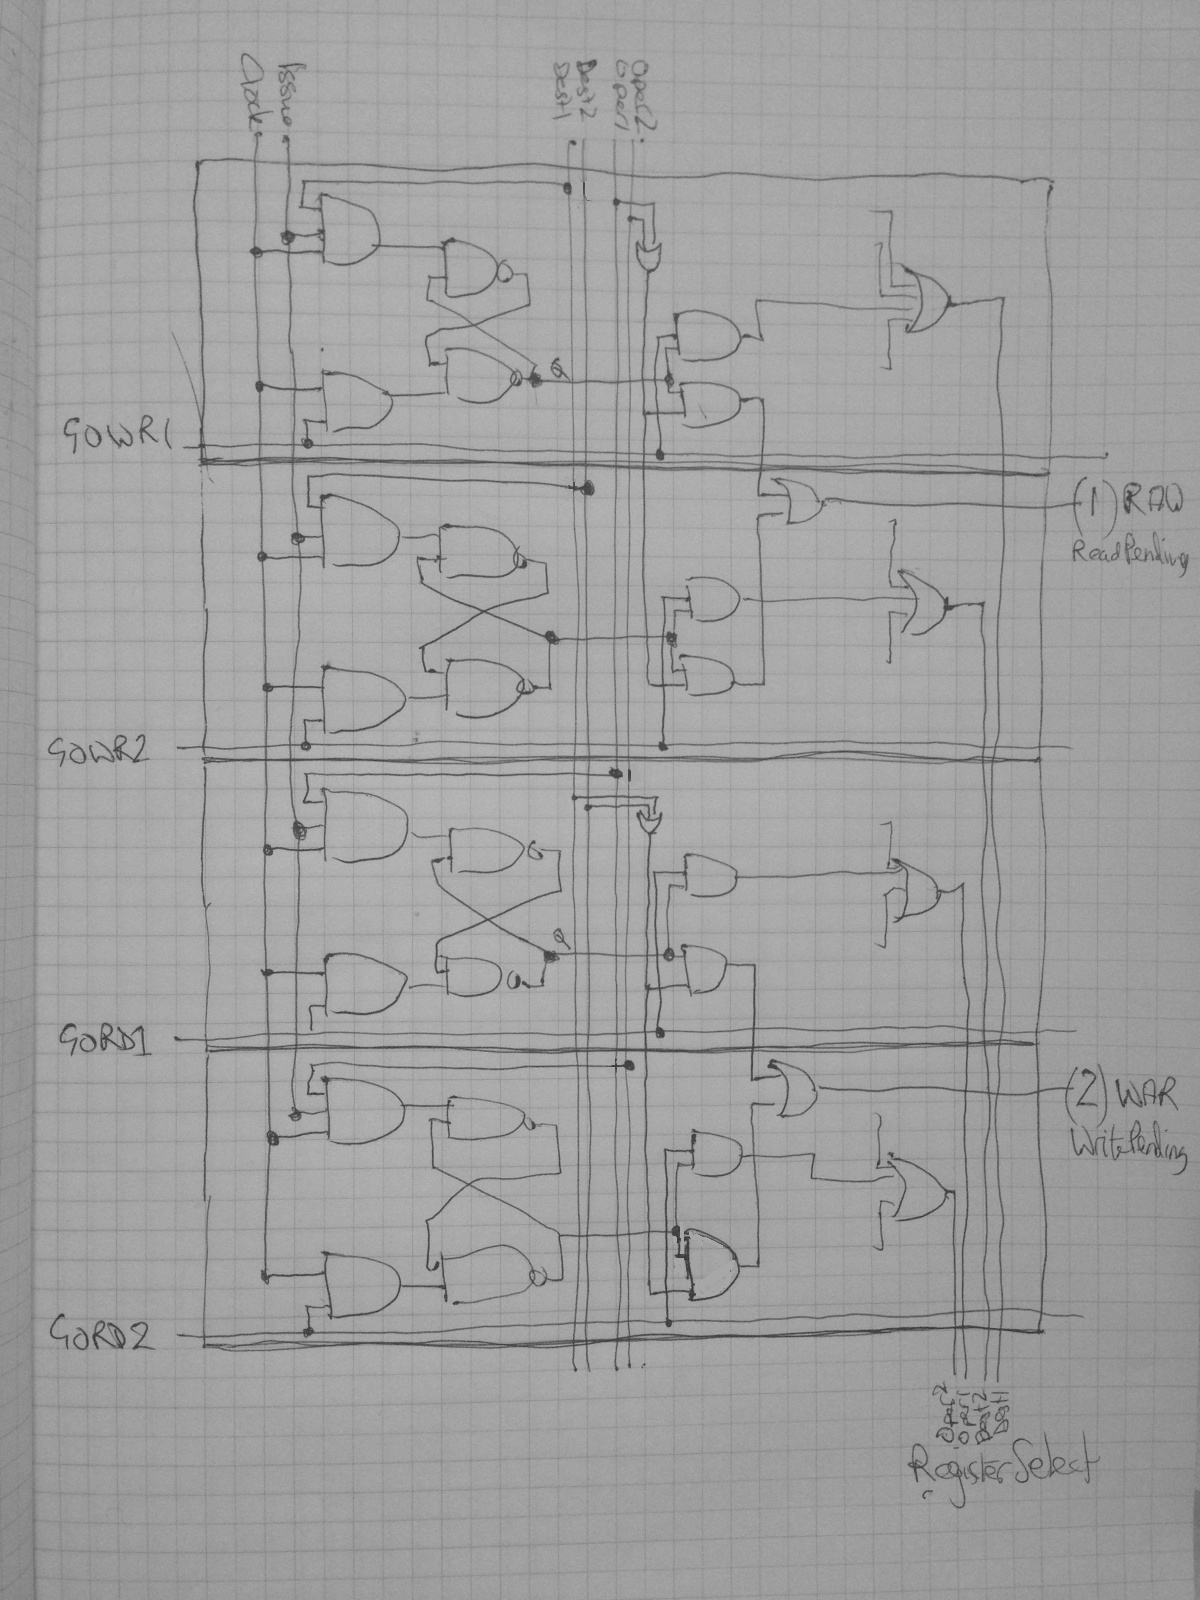 Clock
Issue
Dest1
Dest2
Oper1
Oper2
Q
GOWR1
(1) RAW
ReadPending
GOWR2
Q
GORD1
(2) WAR
WritePending
GORD2
Oper2
Oper1
Dest2
Dest1
RegisterSelect